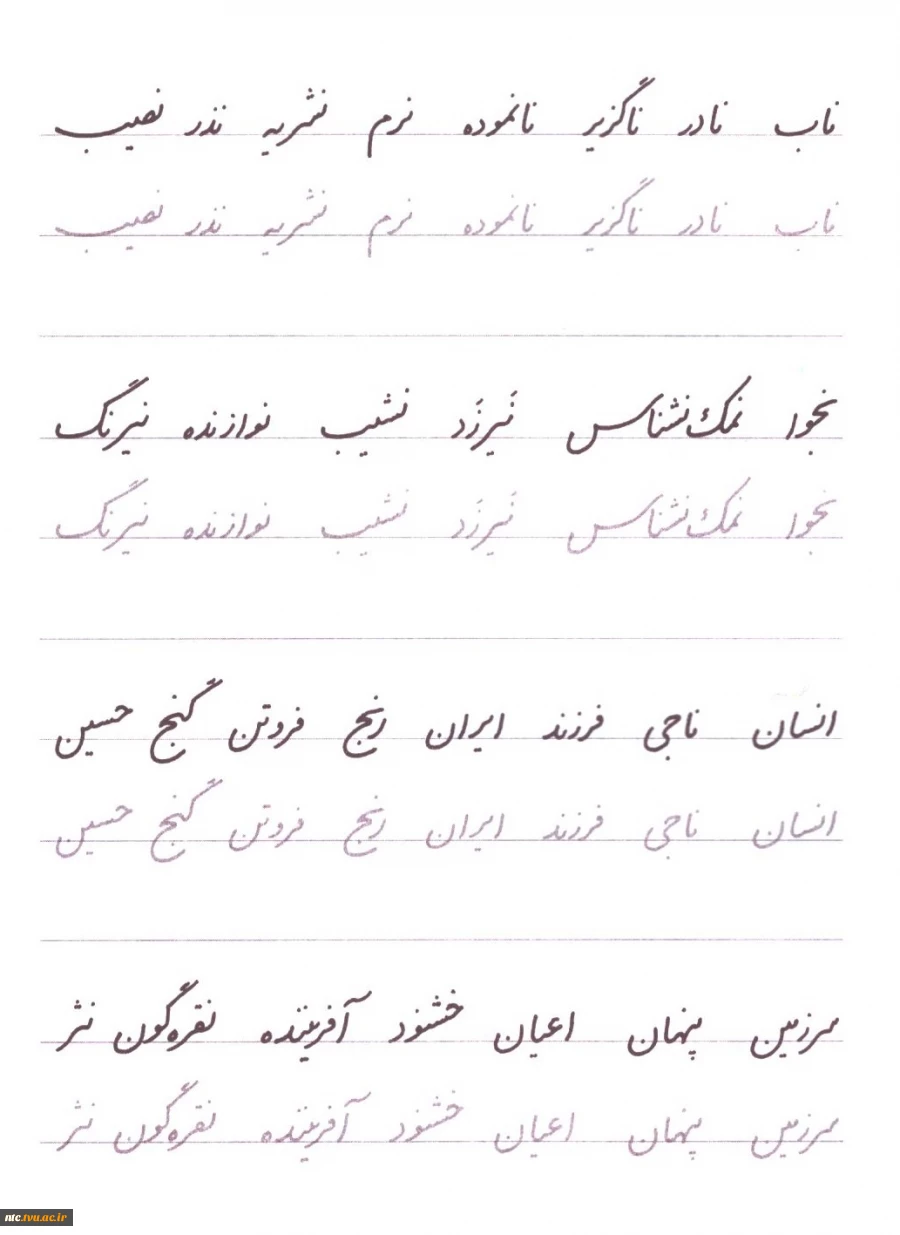 ناب نادر ناگزیر نانموده نرم نشریه نذر نصیب
ناب نادر ناگزیر نانموده نرم نشریه نذر نصیب
نجوا نمک‌نشناس نَیرزَد نشیب نوازنده نیرنگ
نجوا نمک‌نشناس نَیرزَد نشیب نوازنده نیرنگ
انسان ناجی فرزند ایران رنج فروتن گنج حسین
انسان ناجی فرزند ایران رنج فروتن گنج حسین
سرزمین پنهان اعیان خشنود آفریننده نقره‌گون نثر
سرزمین پنهان اعیان خشنود آفریننده نقره‌گون نثر
ntc.tvu.ac.ir